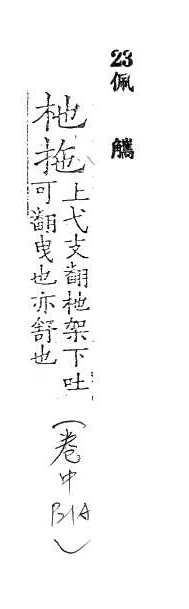 23 佩觿
杝拖
上弋支翻杝架下吐
可翻曳也亦舒也
(卷中31A)